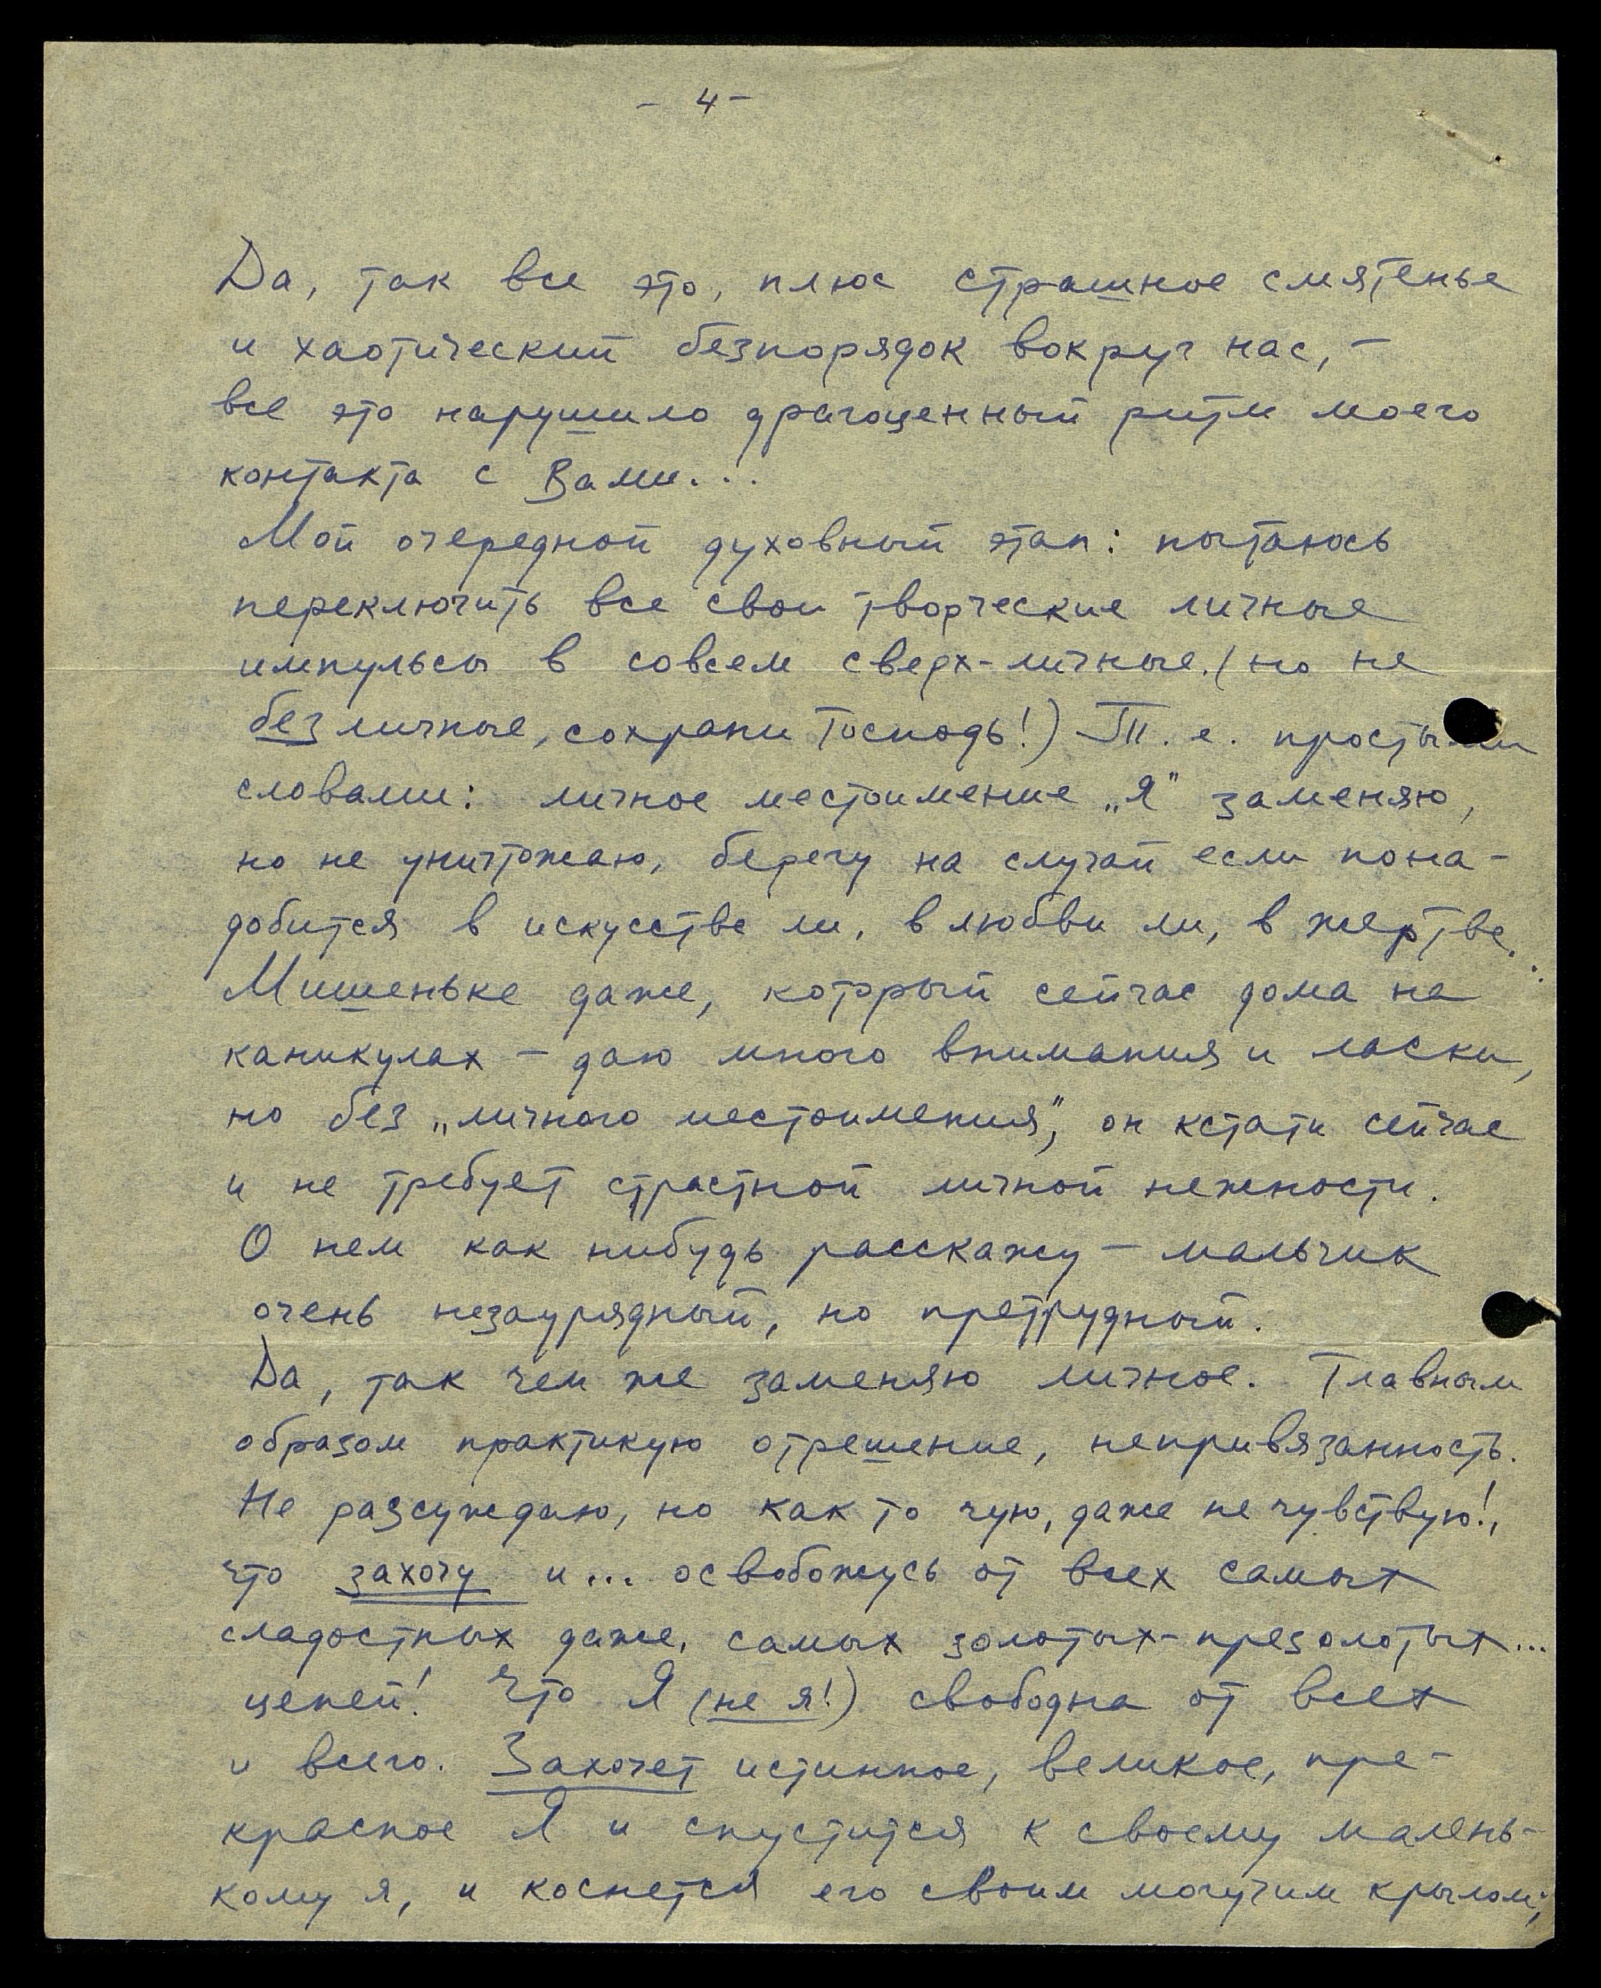 - 4 -
Да, так все это, плюс страшное смятенье
и хаотический безпорядок вокруг нас, -
все это нарушило драгоценный ритм моего
контакта с Вами...
Мой очередной духовный этап: пытаюсь
переключить все свои творческие личные
импульсы в совсем сверх-личные. (но не
безличные, сохрани Господь!) Т. е. простыми
словами: личное местоимение „Я" заменяю,
но не уничтожаю, берегу на случай если пона-
добится в искусстве ли, в любви ли, в жертве...
Мишеньке даже, который сейчас дома на
каникулах - даю много внимания и ласки,
но без „личного местоимения", он кстати сейчас
и не требует страстной личной нежности.
О нем как нибудь расскажу - мальчик
очень незаурядный, но претрудный.
Да, так чем же заменяю личное. Главным
образом практикую отрешение, непривязанность.
Не разсуждаю, но как то чую, даже не чувствую!,
что захочу и... освобожусь от всех самых
сладостных даже, самых золотых-презолотых...
цепей! Что Я (не я!) свободна от всех
и всего. Захочет истинное, великое, пре-
красное Я и спустится к своему малень-
кому я, и коснется его своим могучим крылом;